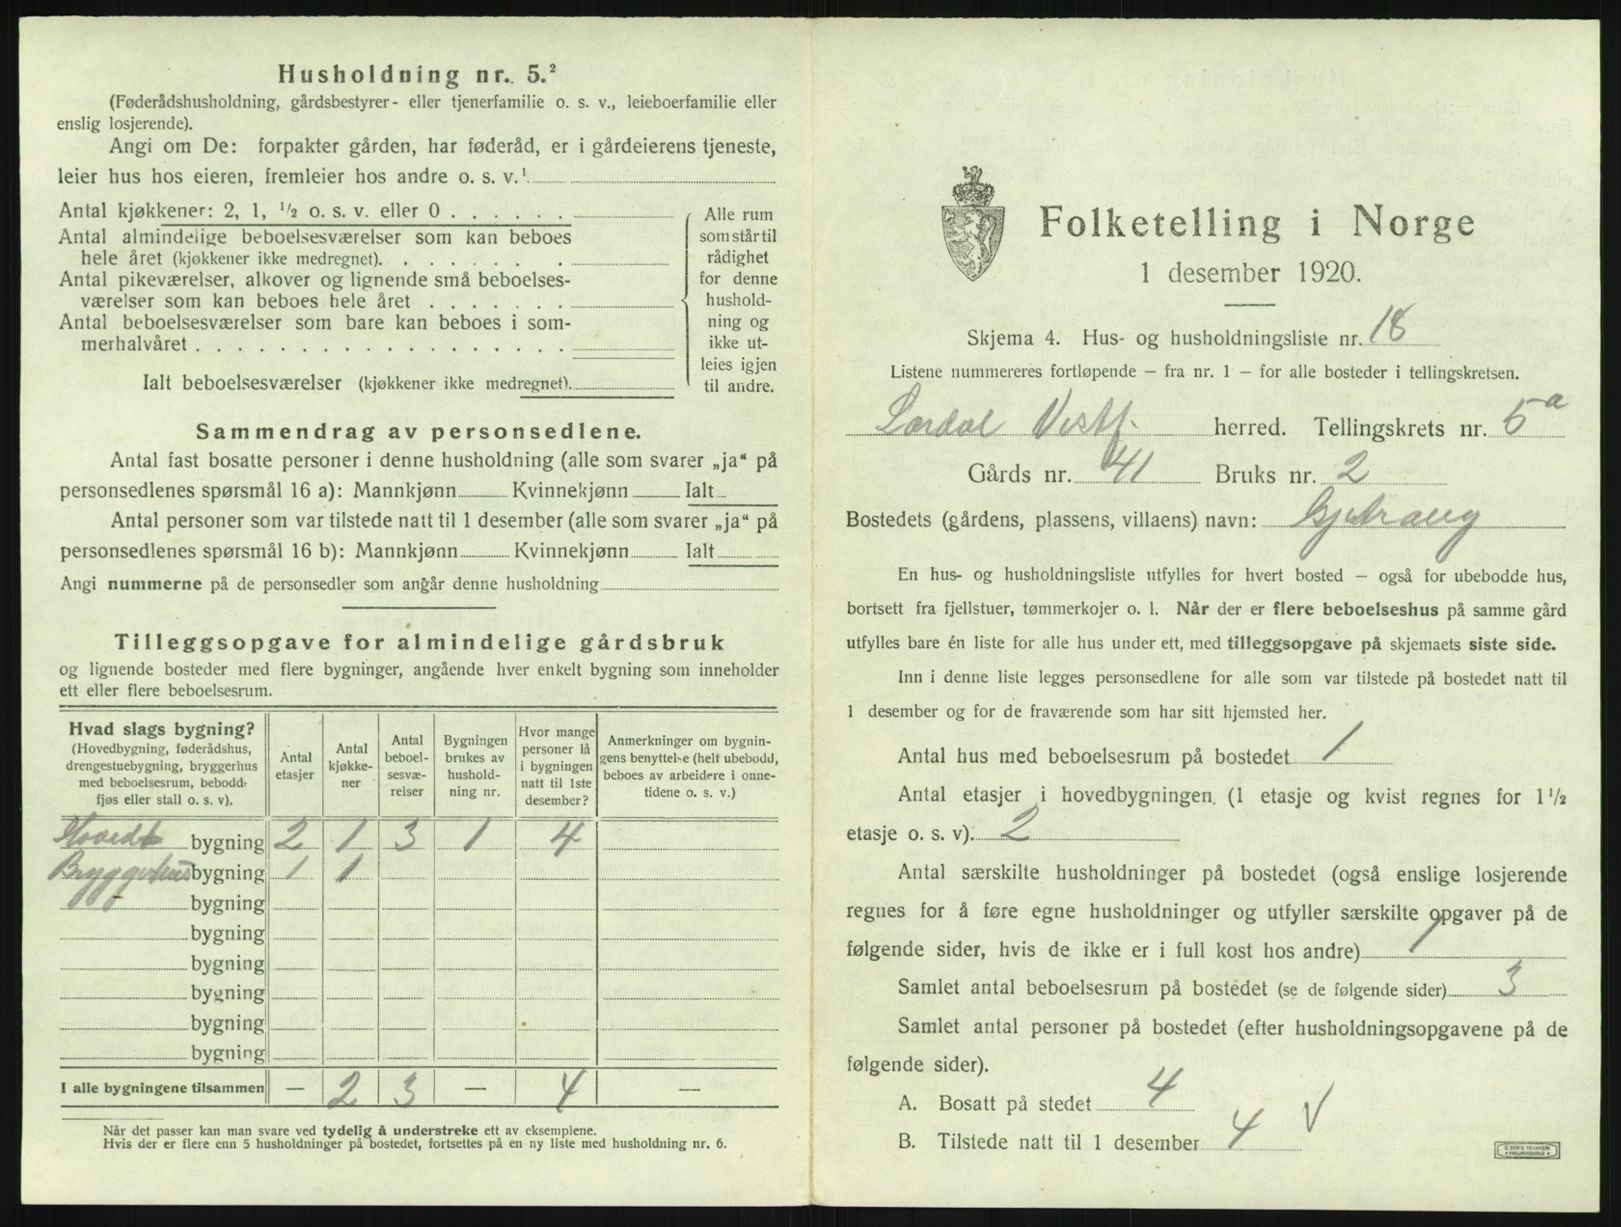 Husholdning nr. 5.²
(Føderådshusholdning, gårdsbestyrer- eller tjenerfamilie o. s. v., leieboerfamilie eller
enslig losjerende).
Angi om De: forpakter gården, har føderåd, er i gårdeierens tjeneste,
leier hus hos eieren, fremleier hos andre o. s. v.¹
Antal kjøkkener: 2, 1, ¹/₂ o. s. v. eller 0 . . . . . .
Antal almindelige beboelsesværelser som kan beboes
hele året (kjøkkener ikke medregnet). . . . . . . .
Antal pikeværelser, alkover og lignende små beboelses-
værelser som kan beboes hele året . . . . . . .
Antal beboelsesværelser som bare kan beboes i som-
merhalvåret . . . . . . . . . . . . . . . . . .
Ialt beboelsesværelser (kjøkkener ikke medregnet).
Alle rum
som står til
rådighet
for denne
hushold-
ning og
ikke ut-
leies igjen
til andre.
Sammendrag av personsedlene.
Antal fast bosatte personer i denne husholdning (alle som svarer „ja“ på
personsedlenes spørsmål 16 a): Mannkjønn Kvinnekjønn Ialt
Antal personer som var tilstede natt til 1 desember (alle som svarer „ja“ på
personsedlenes spørsmål 16 b): Mannkjønn Kvinnekjønn Ialt
Angi nummerne på de personsedler som angår denne husholdning
Tilleggsopgave for almindelige gårdsbruk
og lignende bosteder med flere bygninger, angående hver enkelt bygning som inneholder
ett eller flere beboelsesrum.
Hvad slags bygning?
(Hovedbygning, føderådshus,
drengestuebygning, bryggerhus
med beboelsesrum, bebodd
fjøs eller stall o. s. v).
Antal
etasjer
Antal
kjøkke-
ner
Antal
beboel-
sesvæ-
relser
Bygningen
brukes av
hushold-
ning nr.
Hvor mange
personer lå
i bygningen
natt til 1ste
desember?
Anmerkninger om bygnin-
gens benyttelse (helt ubebodd,
beboes av arbeidere i onne-
tidene o. s. v.)
Hoved bygning 2 1 3 1 4
Bryggerhus bygning 1 1
bygning
bygning
bygning
bygning
bygning
bygning
I alle bygningene tilsammen — 2 3 — 4 —
Når det passer kan man svare ved tydelig å understreke ett av eksemplene.
Hvis der er flere enn 5 husholdninger på bostedet, fortsettes på en ny liste med husholdning nr. 6.
Folketelling i Norge
1 desember 1920.
Skjema 4. Hus- og husholdningsliste nr. 18
Listene nummereres fortløpende — fra nr. 1 — for alle bosteder i tellingskretsen.
Lardal Vestf. herred. Tellingskrets nr. 5a
Gårds nr. 41 Bruks nr. 2
Bostedets (gårdens, plassens, villaens) navn:
En hus- og husholdningsliste utfylles for hvert bosted — også for ubebodde hus,
bortsett fra fjellstuer, tømmerkojer o. l. Når der er flere beboelseshus på samme gård
utfylles bare én liste for alle hus under ett, med tilleggsopgave på skjemaets siste side.
Inn i denne liste legges personsedlene for alle som var tilstede på bostedet natt til
1 desember og for de fraværende som har sitt hjemsted her.
Antal hus med beboelsesrum på bostedet 1
Antal etasjer i hovedbygningen (1 etasje og kvist regnes for 1¹/₂
etasje o. s. v). 2
Antal særskilte husholdninger på bostedet (også enslige losjerende
regnes for å føre egne husholdninger og utfyller særskilte opgaver på de
følgende sider, hvis de ikke er i full kost hos andre) 1
Samlet antal beboelsesrum på bostedet (se de følgende sider) 3
Samlet antal personer på bostedet (efter husholdningsopgavene på de
følgende sider).
A. Bosatt på stedet 4
B. Tilstede natt til 1 desember 4 √